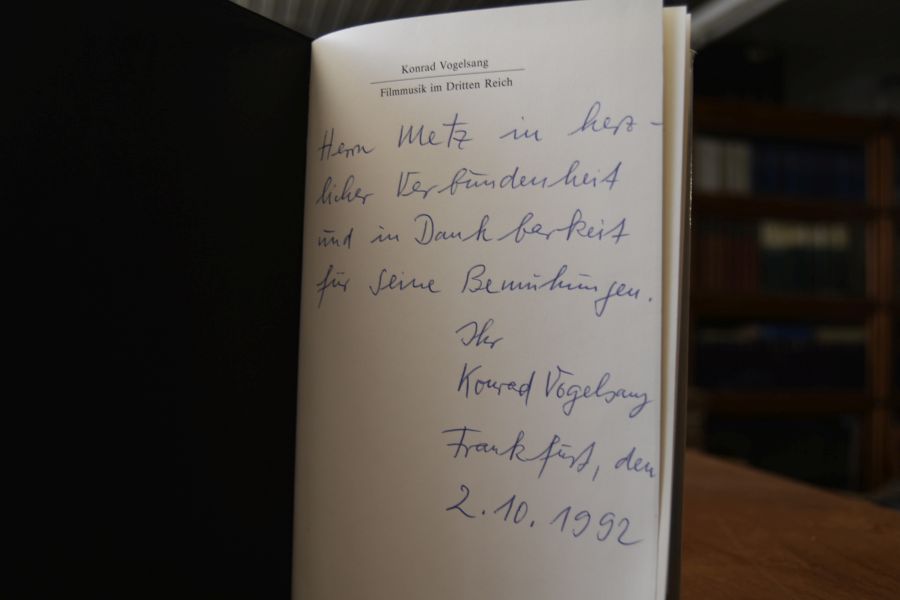 Konrad Vogelsang
Filmmusik im Dritten Reich
Herrn Metz in herz-
licher Verbundenheit
und in Dankbarkeit
für seine Bemühungen.
Ihr
Konrad Vogelsang
Frankfurt, den
2.10.1992